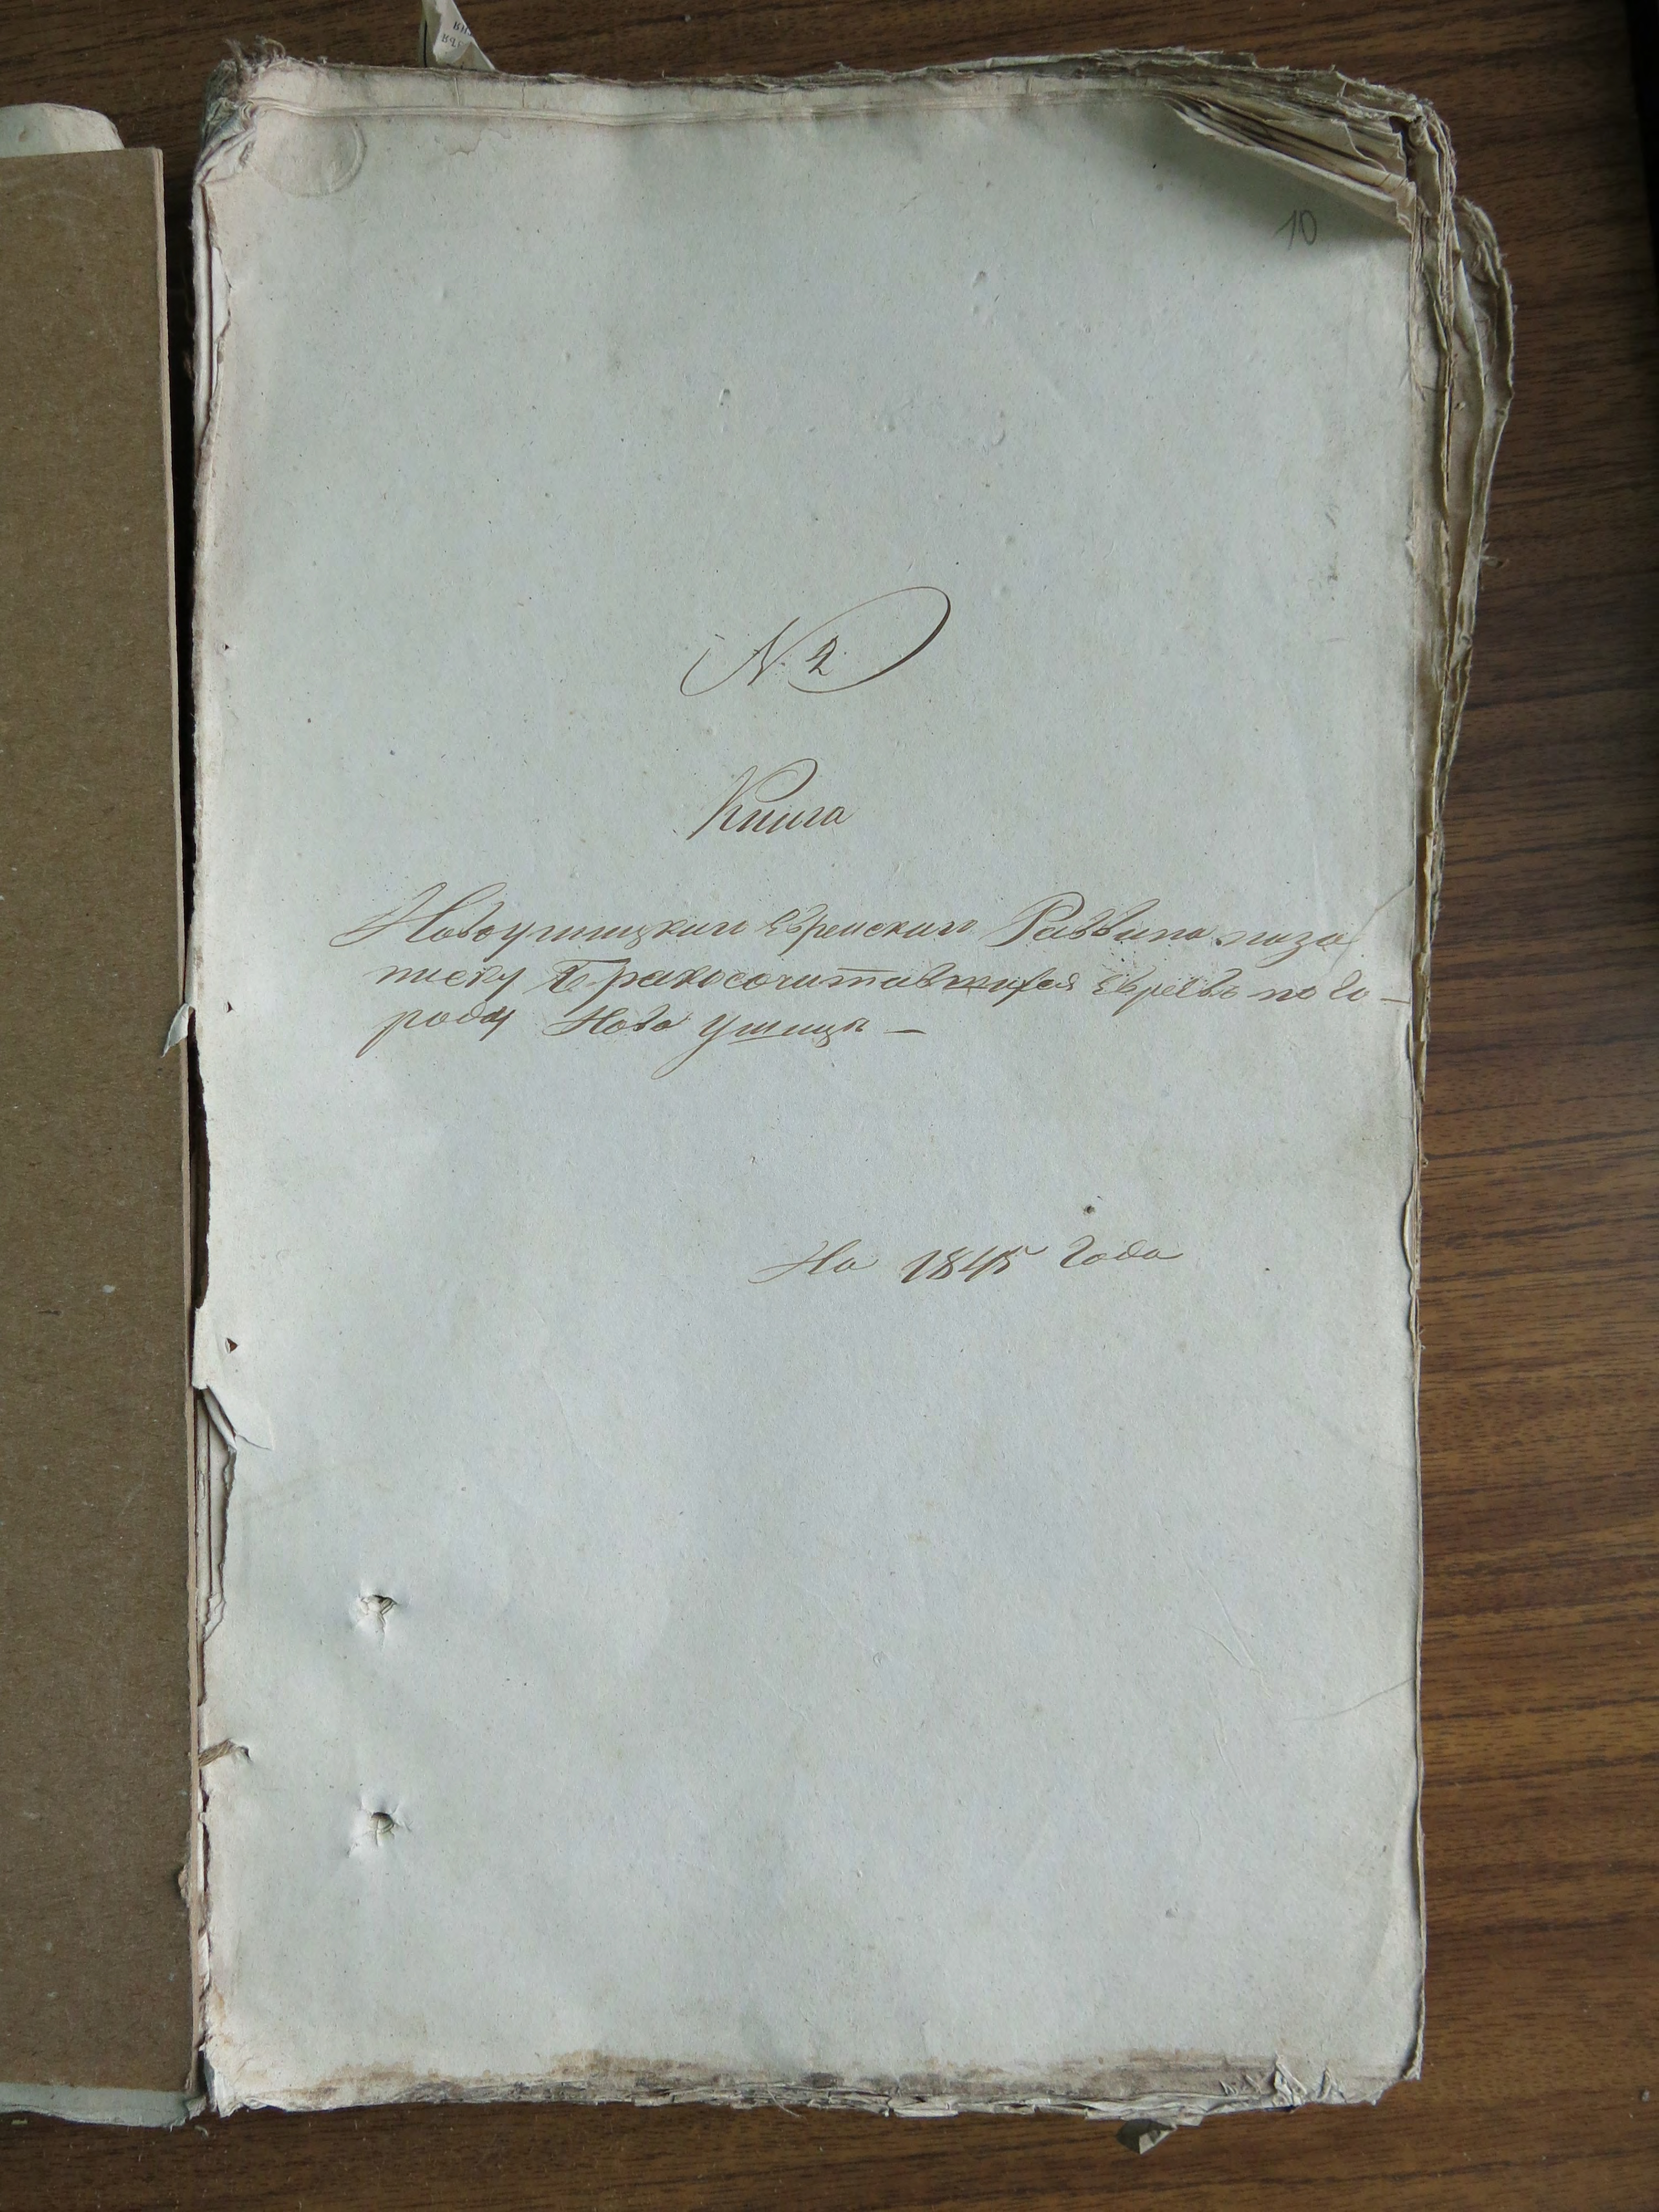 10
N. 2.
Книга
Новоушицкаго Еврейскаго Раввина на за
писку Бракосочитавшихся Евреевъ по Го-
роду Ново Ушицы —
На 1845 Года